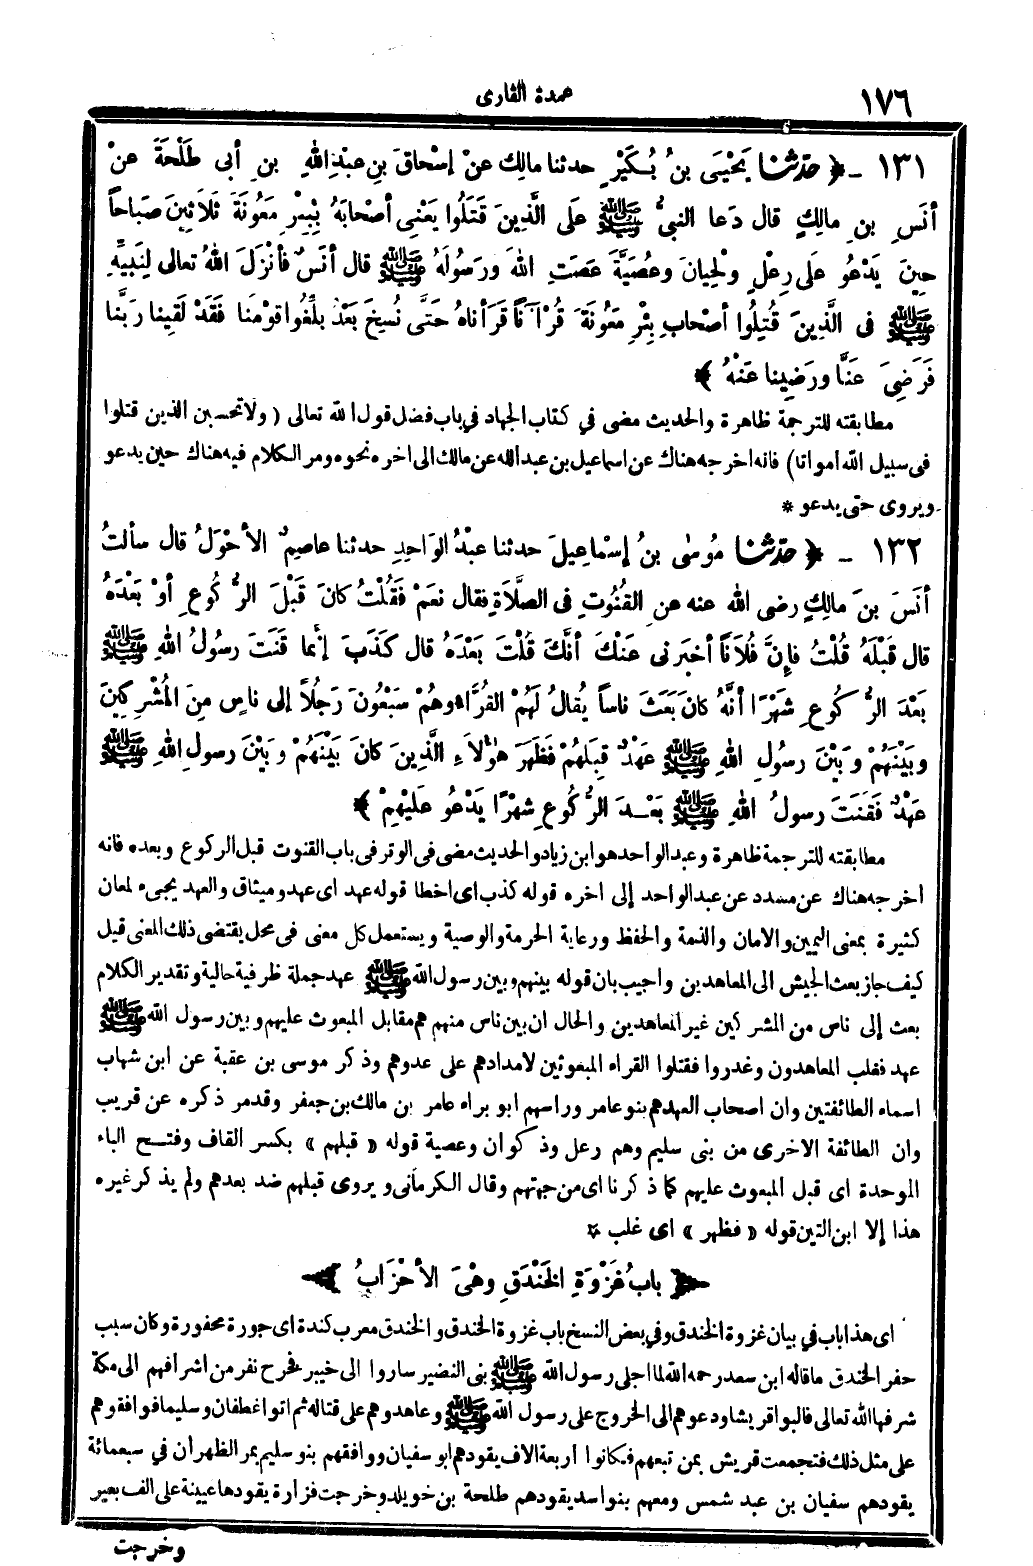 ١٧٦
عمدة القارى
١٣١ - ﴿ حدثنا يَحْيَى بنُ بُكَيْرٍ حدثنا مالِك عنْ إسْحاقَ بنِ عبْدِ اللهِ بنِ أبى طَلْحَةَ عنْ
أنَسِ بنِ مالِكٍ قال دَعا النبيُّ ﷺ علَى الَّذِينَ قَتَلُوا يَعْنِى أصْحابَهُ بِبِئْرِ مَعُونَةَ ثَلاَثِينَ صَباحاً
حِينَ يَدْعُو علَى رِعْلٍ ولِحْيانَ وعُصَيَّةَ عَصَتِ اللهَ ورَسُولَهُ ﷺ قال أنَسٌ فأنْزَلَ اللهُ تعالى لِنَبِيِّهِ
ﷺ فى الَّذِينَ قُتِلُوا أصْحابِ بِئْرِ مَعُونَةَ قُرْآناً قَرَأناهُ حَتَّى نُسِخَ بَعْدُ بلِّغُوا قوْمَنا فَقَدْ لَقِينا رَبَّنا
فَرَضِىَ عَنَّا ورَضِينا عَنْهُ ﴾
مطابقته للترجمة ظاهرة والحديث مضى في كتاب الجهاد في باب فضل قول الله تعالى ( ولا تحسبن الذين قتلوا
فى سبيل الله أمواتا) فانه اخرجه هناك عن اسماعيل بن عبد الله عن مالك الى اخره نحوه ومر الكلام فيه هناك حين يدعو
ويروى حتى يدعو *
١٣٢ - ﴿ حدثنا مُوسٰى بنُ إسْماعِيلَ حدثنا عبْدُ الوَاحِدِ حدثنا عاصِمٌ الأحْوَلُ قال سألتُ
أنَسَ بنَ مالِكٍ رضى الله عنه عنِ القُنُوتِ فى الصَّلاَةِ فقال نعَمْ فَقُلْتُ كانَ قَبْلَ الرُّكُوعِ أوْ بَعْدَهُ
قال قَبْلَهُ قُلْتُ فإِنَّ فُلاَناً أخبَرنى عَنْكَ أنَّكَ قُلْتَ بَعْدَهُ قال كَذَبَ إنَّما قَنَتَ رسُولُ اللهِ ﷺ
بَعْدَ الرُّكُوعِ شَهْرًا أنَّهُ كانَ بَعَثَ ناساً يُقالُ لَهُمْ القُرَّاءُ وهُمْ سَبْعُونَ رَجُلاً إلى ناسٍ مِنَ المُشْرِكِينَ
وبَيْنَهُمْ وبَيْنَ رسُولِ اللهِ ﷺ عَهْدٌ قِبَلَهُمْ فَظَهَرَ هٰؤُلاَءِ الَّذِينَ كانَ بَيْنَهُمْ وبَيْنَ رسولِ اللهِ ﷺ
عَهْدٌ فَقَنَتَ رسولُ اللهِ ﷺ بَعْدَ الرُّكُوعِ شهْرًا يَدْعُو علَيْهِمْ ﴾
مطابقته للترجمة ظاهرة وعبد الواحد هو ابن زياد والحديث مضى فى الوتر فى باب القنوت قبل الركوع وبعده فانه
اخرجه هناك عن مسدد عن عبد الواحد إلى اخره قوله كذب اى اخطا قوله عهد اى عهد وميثاق والعهد يجىء لمعان
كثيرة بمعنى اليمين والامان والذمة والحفظ ورعاية الحرمة والوصية ويستعمل كل معنى فى محل يقتضى ذلك المعنى قيل
كيف جاز بعث الجيش الى المعاهدين واجيب بان قوله بينهم وبين رسول الله ﷺ عهد جملة ظرفية حالية وتقدير الكلام
بعث إلى ناس من المشركين غير المعاهدين والحال ان بين ناس منهم هم مقابل المبعوث عليهم وبين رسول الله ﷺ
عهد فغلب المعاهدون وغدروا فقتلوا القراء المبعوثين لامدادهم على عدوهم وذكر موسى بن عقبة عن ابن شهاب
اسماء الطائفتين وان اصحاب العهد هم بنو عامر وراسهم ابو براء عامر بن مالك بن جعفر وقد مر ذكره عن قريب
وان الطائفة الاخرى من بنى سليم وهم رعل وذكوان وعصية قوله « قبلهم » بكسر القاف وفتح الباء
الموحدة اى قبل المبعوث عليهم كما ذكرنا اى من جهتهم وقال الكرمانى ويروى قبلهم ضد بعدهم ولم يذكر غيره
هذا إلا ابن التين قوله « فظهر » اى غلب *
﴿ بابُ غَزْوَةِ الخَنْدَقِ وهْىَ الأحْزَابُ ﴾
اى هذا باب في بيان غزوة الخندق وفي بعض النسخ باب غزوة الخندق والخندق معرب كندة اى جورة محفورة وكان سبب
حفر الخندق ما قاله ابن سعد رحمه الله لما اجلى رسول الله ﷺ بنى النضير ساروا الى خيبر فخرج نفر من اشرافهم الى مكة
شرفها الله تعالى فالبوا قريشا ودعوهم الى الخروج على رسول الله ﷺ وعاهدوهم على قتاله ثم اتوا غطفان وسليما فوافقوهم
على مثل ذلك فتجمعت قريش بمن تبعهم فكانوا أربعة الاف يقودهم ابو سفيان ووافقهم بنو سليم بمر الظهران في سبعمائة
يقودهم سفيان بن عبد شمس ومعهم بنو اسد يقودهم طلحة بن خويلد وخرجت فزارة يقودها عيينة على الف بعير
وخرجت